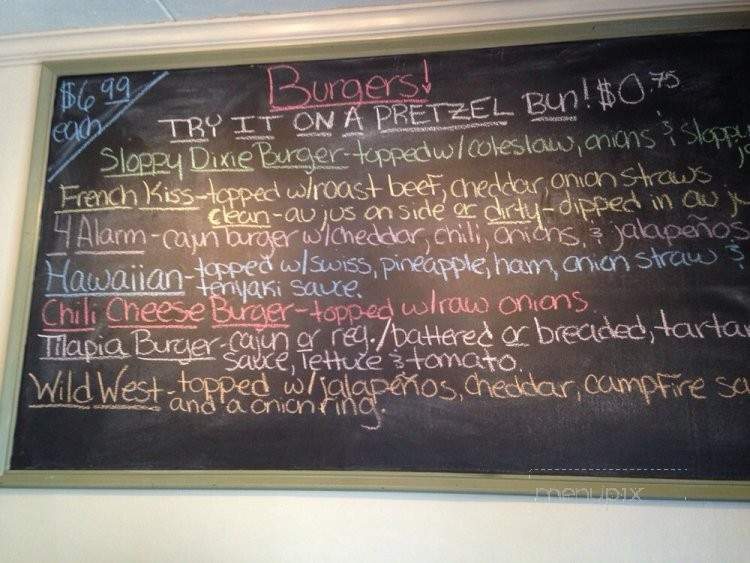 $6.99 each
Burgers!
TRY IT ON A PRETZEL Bun! $0.75
Sloppy Dixie Burger-topped w/coleslaw, onions & sloppy
French Kiss-topped w/roast beef, cheddar, onion straws
clean-au jus on side or dirty-dipped in au j
4 Alarm-cajun burger w/cheddar, chili, onions, & jalapeños
Hawaiian-topped w/swiss, pineapple, ham, onion straw &
teriyaki sauce.
Chili Cheese Burger-topped w/raw onions
Tilapia Burger-cajun or reg./battered or breaded, tartar
sauce, lettuce & tomato.
Wild West-topped w/jalapeños, cheddar, campfire sa
and a onion ring.
menupix